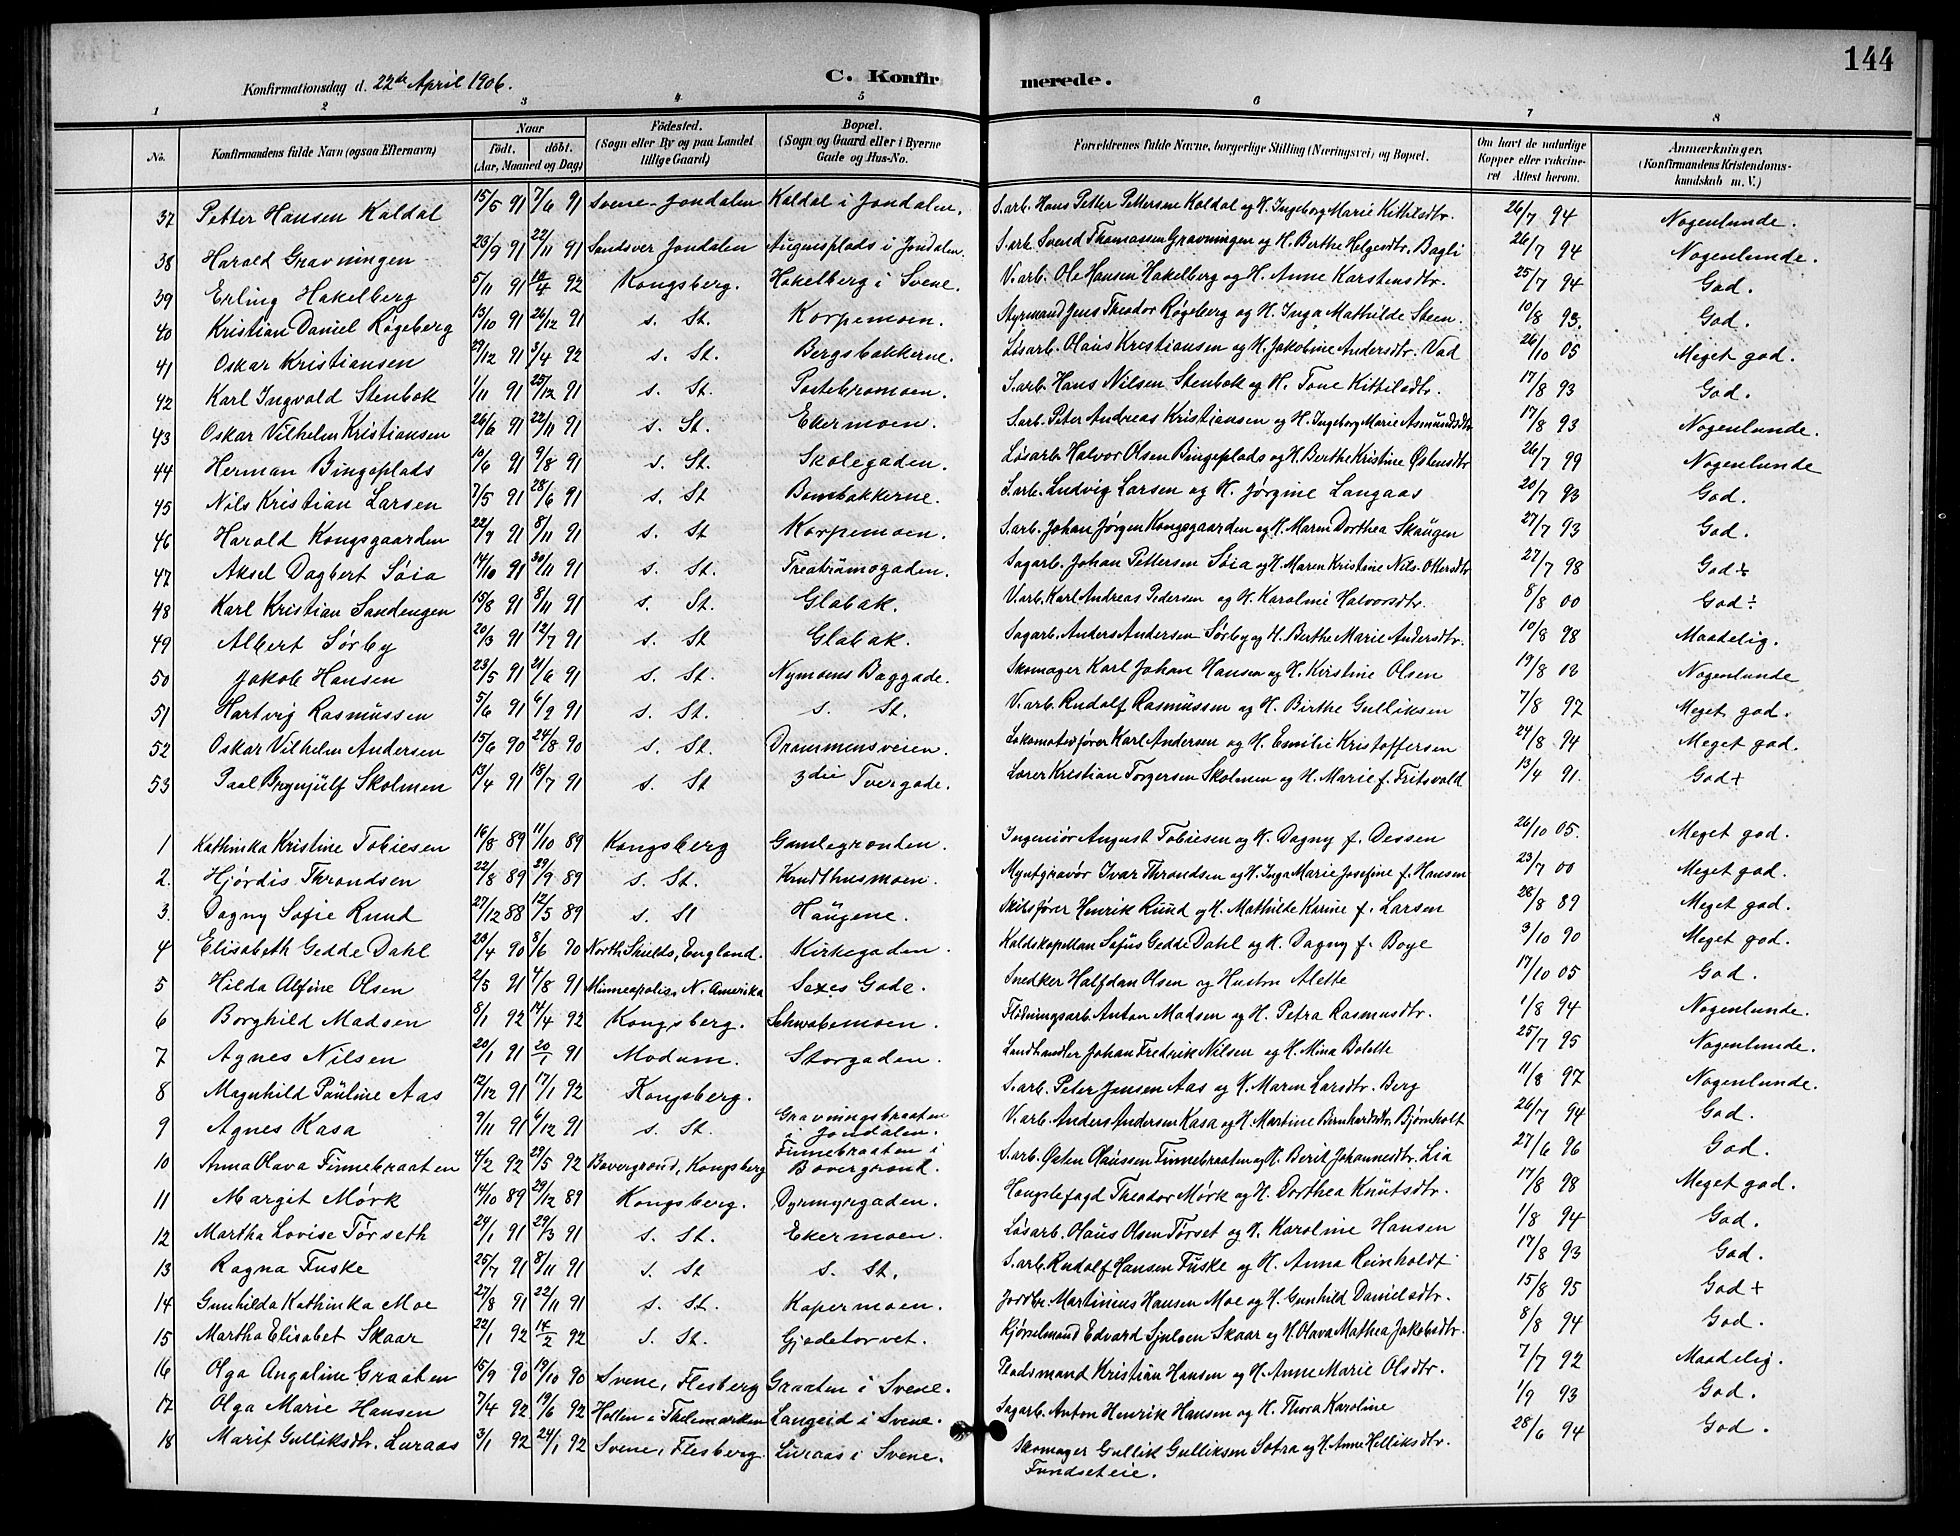 144
Konfirmationsdag d. 22de April 1906.
C. Konfir merede.
1 2 3 4 5 6 7 8
No. Konfirmandens fulde Navn (ogsaa Efternavn) Naar født. døbt. (Aar, Maaned og Dag) Fødested. (Sogn eller By og paa Landet tillige Gaard) Bopæl. (Sogn og Gaard eller i Byerne Gade og Hus-No. Forældrenes fulde Navne, borgerlige Stilling (Næringsvei) og Bopæl. Om havt de naturlige Kopper eller vakcineret Attest herom. Anmærkninger. (Konfirmandens Kristendomskundskab m. V.)
37 Petter Hansen Kaldal 15/5 91 7/6 91 Svene-Jondalen Kaldal i Jondalen. S. arb. Hans Petter Pettersen Kaldal og H. Ingeborg Marie Kittilsdtr. 26/7 94 Nogenlunde.
38 Harald Gravningen 23/9 91 22/11 91 Sandsver Jondalen Augunsplads i Jondalen. S. arb. Svend Thomassen Gravningen og H. Berthe Helgesdtr. Bagli 26/7 94 Nogenlunde.
39 Erling Hakelberg 5/11 91 10/4 92 Kongsberg. Hakelberg i Svene. V. arb. Ole Hansen Hakelberg og H. Anne Karstensdtr. 25/7 94 God.
40 Kristian Daniel Røgeberg 13/10 91 26/12 91 s. St. Korpemoen. Styrmand Jens Theodor Røgeberg og H. Inga Mathilde Steen. 10/8 93. God.
41 Oskar Kristiansen 29/12 91 3/4 92 s. St. Bergsbakkerne. Løsarb. Olaus Kristiansen og H. Jakobine Andersdtr. Vad 26/10 05 Meget god.
42 Karl Ingvald Stenbok 1/11 91 25/12 91 s. St. Postebromoen. S. arb. Hans Nilsen Stenbok og H. Tone Kittilsdtr. 17/8 93 God.
43 Oskar Vilhelm Kristiansen 26/6 91 22/11 91 s. St. Ekermoen. S. arb. Peter Andreas Kristiansen og H. Ingeborg Marie Asmundsdtr 17/8 93 Nogenlunde.
44 Herman Bingeplads 10/6 91 9/8 91 s. St. Skolegaden. Løsarb. Halvor Olsen Bingeplads og H. Berthe Kristine Østensdtr 26/7 99 Nogenlunde
45 Nils Kristian Larsen 7/5 91 28/6 91 s. St Bombakkerne. S. arb. Ludvig Larsen og H. Jørgine Langaas 20/7 93 God.
46 Harald Kongsgaarden 22/7 91 8/11 91 s. St Korpemoen. S. arb. Johan Jørgen Kongsgaarden og H. Maren Dorthea Skaugen 27/7 93 God.
47 Aksel Dagbert Søia 14/10 91 30/11 91 s. St. Treabrämogaden. Sagarb. Johan Pettersen Søia og H. Maren Kristine Nils-Ottersdtr 27/7 98 God ÷
48 Karl Kristian Sandengen 15/8 91 8/11 91 s. St. Glabak. V. arb. Karl Andreas Pedersen og H. Karoline Halvorsdtr. 8/8 00 God ÷
49 Albert Sørby 20/3 91 12/7 91 s. St Glabak. Sagarb. Anders Andersen Sørby og H. Berthe Marie Andersdtr. 10/8 98 Maadelig.
50 Jakob Hansen 23/5 91 21/6 91 s. St. Nymoens Baggade. Skomager Karl Johan Hansen og H. Kristine Olsen 19/8 03 Nogenlunde
51 Hartvig Rasmussen 5/6 91 6/9 91 s. St. s. St. V. arb. Rudolf Rasmussen og H. Birthe Gulliksen 7/8 97 Meget god.
52 Oskar Vilhelm Andersen 15/6 90 24/8 90 s. St. Drammensveien. Lokomotivfører Karl Andersen og H. Emilie Kristoffersen 24/8 94 Meget god.
53 Paal Brynjülf Skolmen 13/4 91 18/7 91 s. St 3die Tvergade. Lærer Kristian Torgersen Skolmen og H. Marie f. Fritsvold 13/4 91. God +
1 Kathinka Kristine Tobiesen 16/8 89 11/10 89 Kongsberg Gamlegronden. Ingeniør August Tobiesen og H. Dagny f. Dessen 26/10 05. Meget god.
2. Hjørdis Throndsen 22/8 89 29/9 89 s. St. Krudthusmoen. Myntgravør Ivar Throndsen og H. Inga Marie Josefine f. Hansen 23/7 00 Meget god.
3. Dagny Sofie Ruud 27/12 88 12/5 89 s. St Haügene. Skibsfører Henrik Ruud og H. Mathilde Karine f. Larsen 28/8 89 Meget god.
4 Elisabeth Gedde Dahl 23/4 90 8/6 90 North Shields, England. Kirkegaden. Kaldskapellan Sofus Gedde Dahl og H. Dagny f. Boye 3/10 90 Meget god.
5 Hilda Alfine Olsen 2/5 91 4/8 91 Minneapolis, N. Amerika Saxes Gade. Snedker Halfdan Olsen og Hustru Alette 17/10 05 God.
6 Borghild Madsen 8/1 92 14/4 92 Kongsberg. Schwabemoen. Flødningsarb. Anton Madsen og H. Petra Rasmusdtr. 1/8 94 Nogenlunde.
7 Agnes Nilsen 20/1 91 20/1 91 Modum. Storgaden. Landhandler Johan Fredrik Nilsen og H. Mina Bolette 25/7 95 Nogenlunde.
8 Magnhild Paüline Aas 12/12 91 17/1 92 Kongsberg. S. arb. Peter Jensen Aas og H. Maren Larsdtr. Berg 11/8 97 Nogenlunde.
9 Agnes Kasa 9/11 91 6/12 91 s. St. Gravningsbraaten i Jondalen. V. arb. Anders Andersen Kasa og H. Martine Bernhardsdtr. Bjørnholt 26/7 94 God.
10 Anna Olava Finnebraaten 4/2 92 29/5 92 Bævergrend, Kongsberg Finnebraaten i Bævergrend. S. arb. Østen Olaussen Finnebraaten og H. Berit Johannesdtr. Lia 27/6 96 God.
11 Margit Mørk 14/10 89 29/12 89 Kongsberg. Dyrmyrgaden. Hengslefogd Theodor Mørk og H. Dorthea Knutsdtr. 17/8 98 Meget god.
12 Martha Lovise Törseth 24/1 91 29/3 91 s. St. Ekermoen. Løsarb. Olaus Olsen Törset og H. Karoline Hansen 1/8 94 God.
13 Ragna Fuske 25/7 91 8/11 91 s. St s. St. S. arb. Rudolf Hansen Fuske og H. Anna Reinholdt 17/8 93 God.
14 Gunhilda Kathinka Moe 27/8 91 22/11 91 s. St. Kapermoen. Jordbr. Martinius Hansen Moe og H. Gunhild Danielsdtr. 15/8 95 God +
15 Martha Elisabet Skaar 22/1 92 14/2 92 s. St. Gjedetorvet. Kjørselmand Edvard Sjulsen Skaar og H. Olava Mathea Jakobsdtr. 8/8 94 God.
16 Olga Angaline Graaten 15/9 90 19/10 90 Svene, Flesberg Graaten i Svene. Pladsmand Kristian Hansen og H. Anne Marie Olsdtr. 7/7 92 Maadelig.
17 Olga Marie Hansen 7/4 92 19/6 92 Hollen i Thelemarken Langeid i Svene. Sagarb. Anton Henrik Hansen og H. Thora Karoline 1/9 93 God.
18 Marit Gulliksdtr. Luraas 3/1 92 24/1 92 Svene, Flesberg Luraas i Svene. Skomager Gullik Gulliksen Sotra og H. Anne Helliksdtr. 28/6 94 God.
Fundseteie.